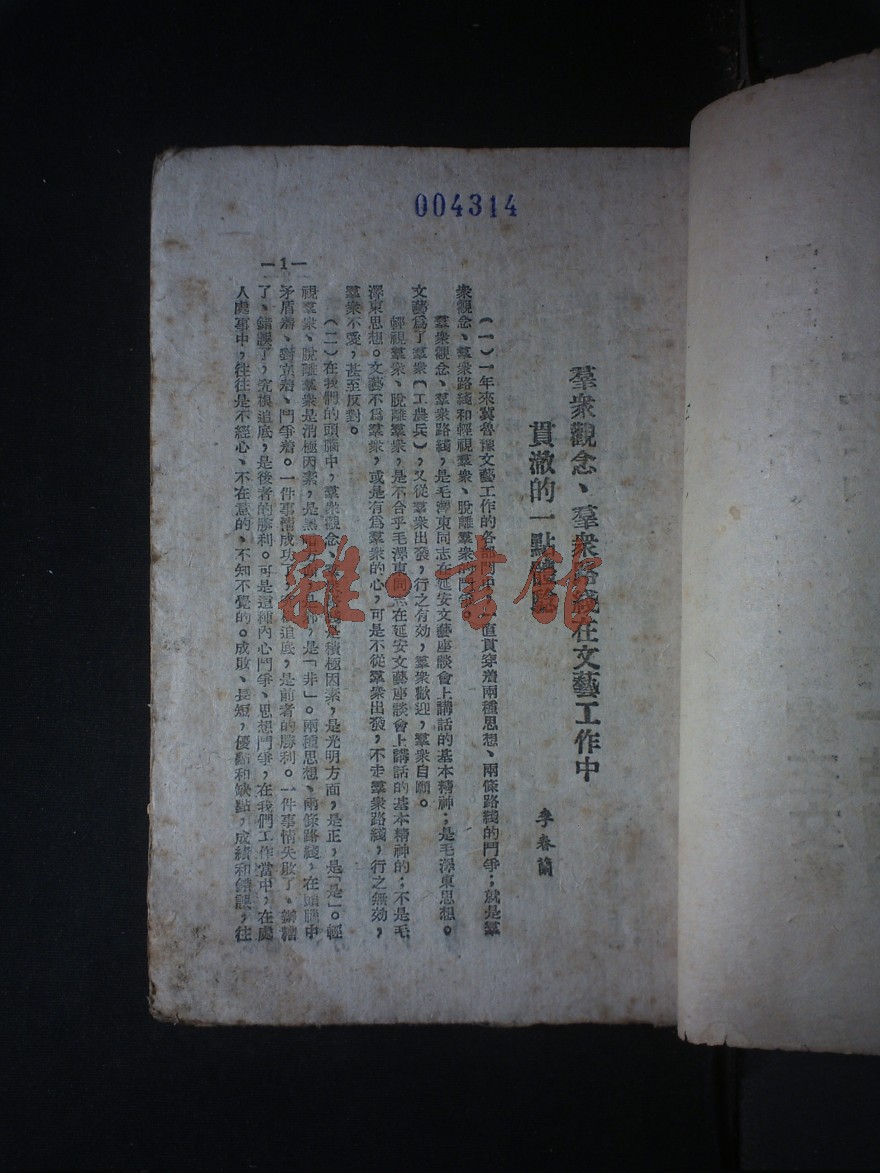 004314
羣衆觀念、羣衆路綫在文藝工作中
貫澈的一點體驗
李春蘭
（一）一年來冀魯豫文藝工作的各部門中，一直貫穿着兩種思想、兩條路綫的鬥爭；就是羣
衆觀念、羣衆路綫和輕視羣衆、脫離羣衆的鬥爭。
羣衆觀念、羣衆路綫，是毛澤東同志在延安文藝座談會上講話的基本精神；是毛澤東思想。
文藝爲了羣衆（工農兵），又從羣衆出發，行之有効，羣衆歡迎，羣衆自願。
輕視羣衆、脫離羣衆，是不合乎毛澤東同志在延安文藝座談會上講話的基本精神的；不是毛
澤東思想。文藝不爲羣衆，或是有爲羣衆的心，可是不從羣衆出發，不走羣衆路綫，行之無効，
羣衆不愛，甚至反對。
（二）在我們的頭腦中，羣衆觀念、是積極因素，是光明方面，是正，是「是」。輕
視羣衆、脫離羣衆是消極因素，是黑暗方面，是「非」。兩種思想、兩條路綫，在頭腦中
矛盾着、對立着、鬥爭着。一件事情成功了，追底，是前者的勝利。一件事情失敗了、辦糟
了、錯誤了，究根追底，是後者的勝利。可是這種內心鬥爭、思想鬥爭，在我們工作當中，在處
人處事中，往往是不經心、不在意的、不知不覺的。成敗、長短，優點和缺點，成績和錯誤，往
—1—
雜·書館